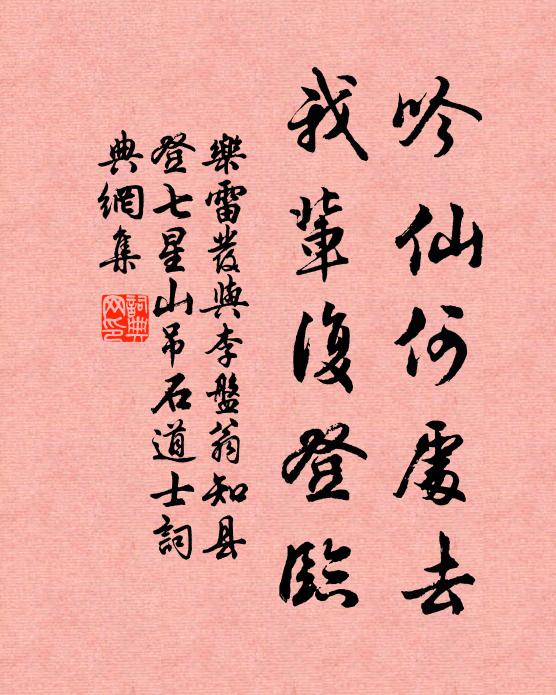 吟仙何處去
我輩復登臨
樂雷發與李盤翁知县
登七星山吊石道士詞
典網集
詞典
网印